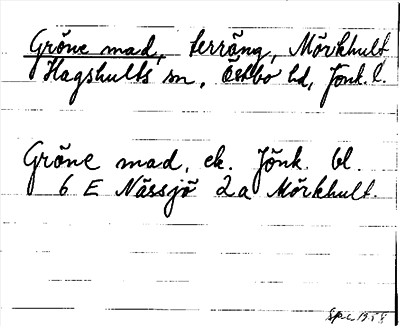 Gröne mad, terräng, Mörkhult
Hagshults sn, Östbo hd, Jönk. l.
Gröne mad, ek. Jönk. bl.
6 E Nässjö 2a Mörkhult.
1958